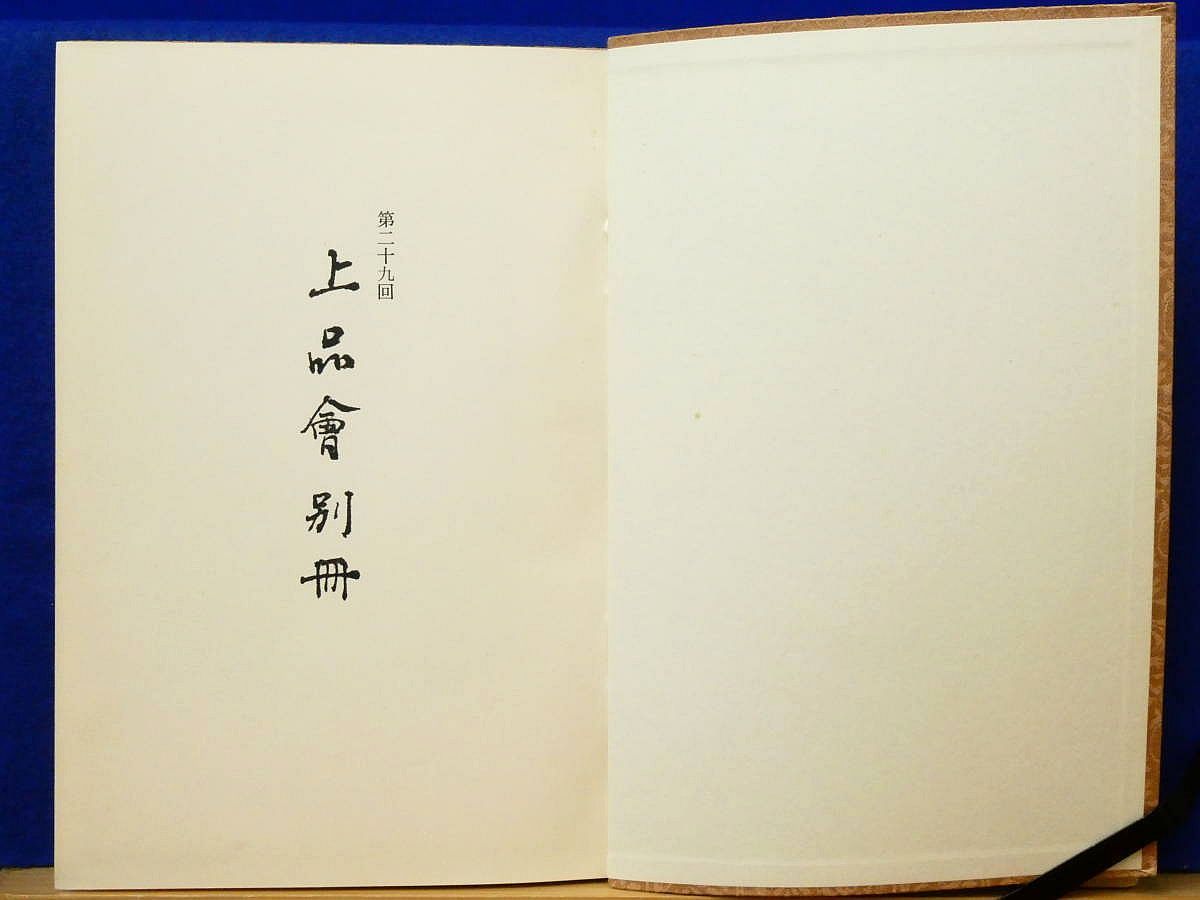 第二十九回
上品會別冊